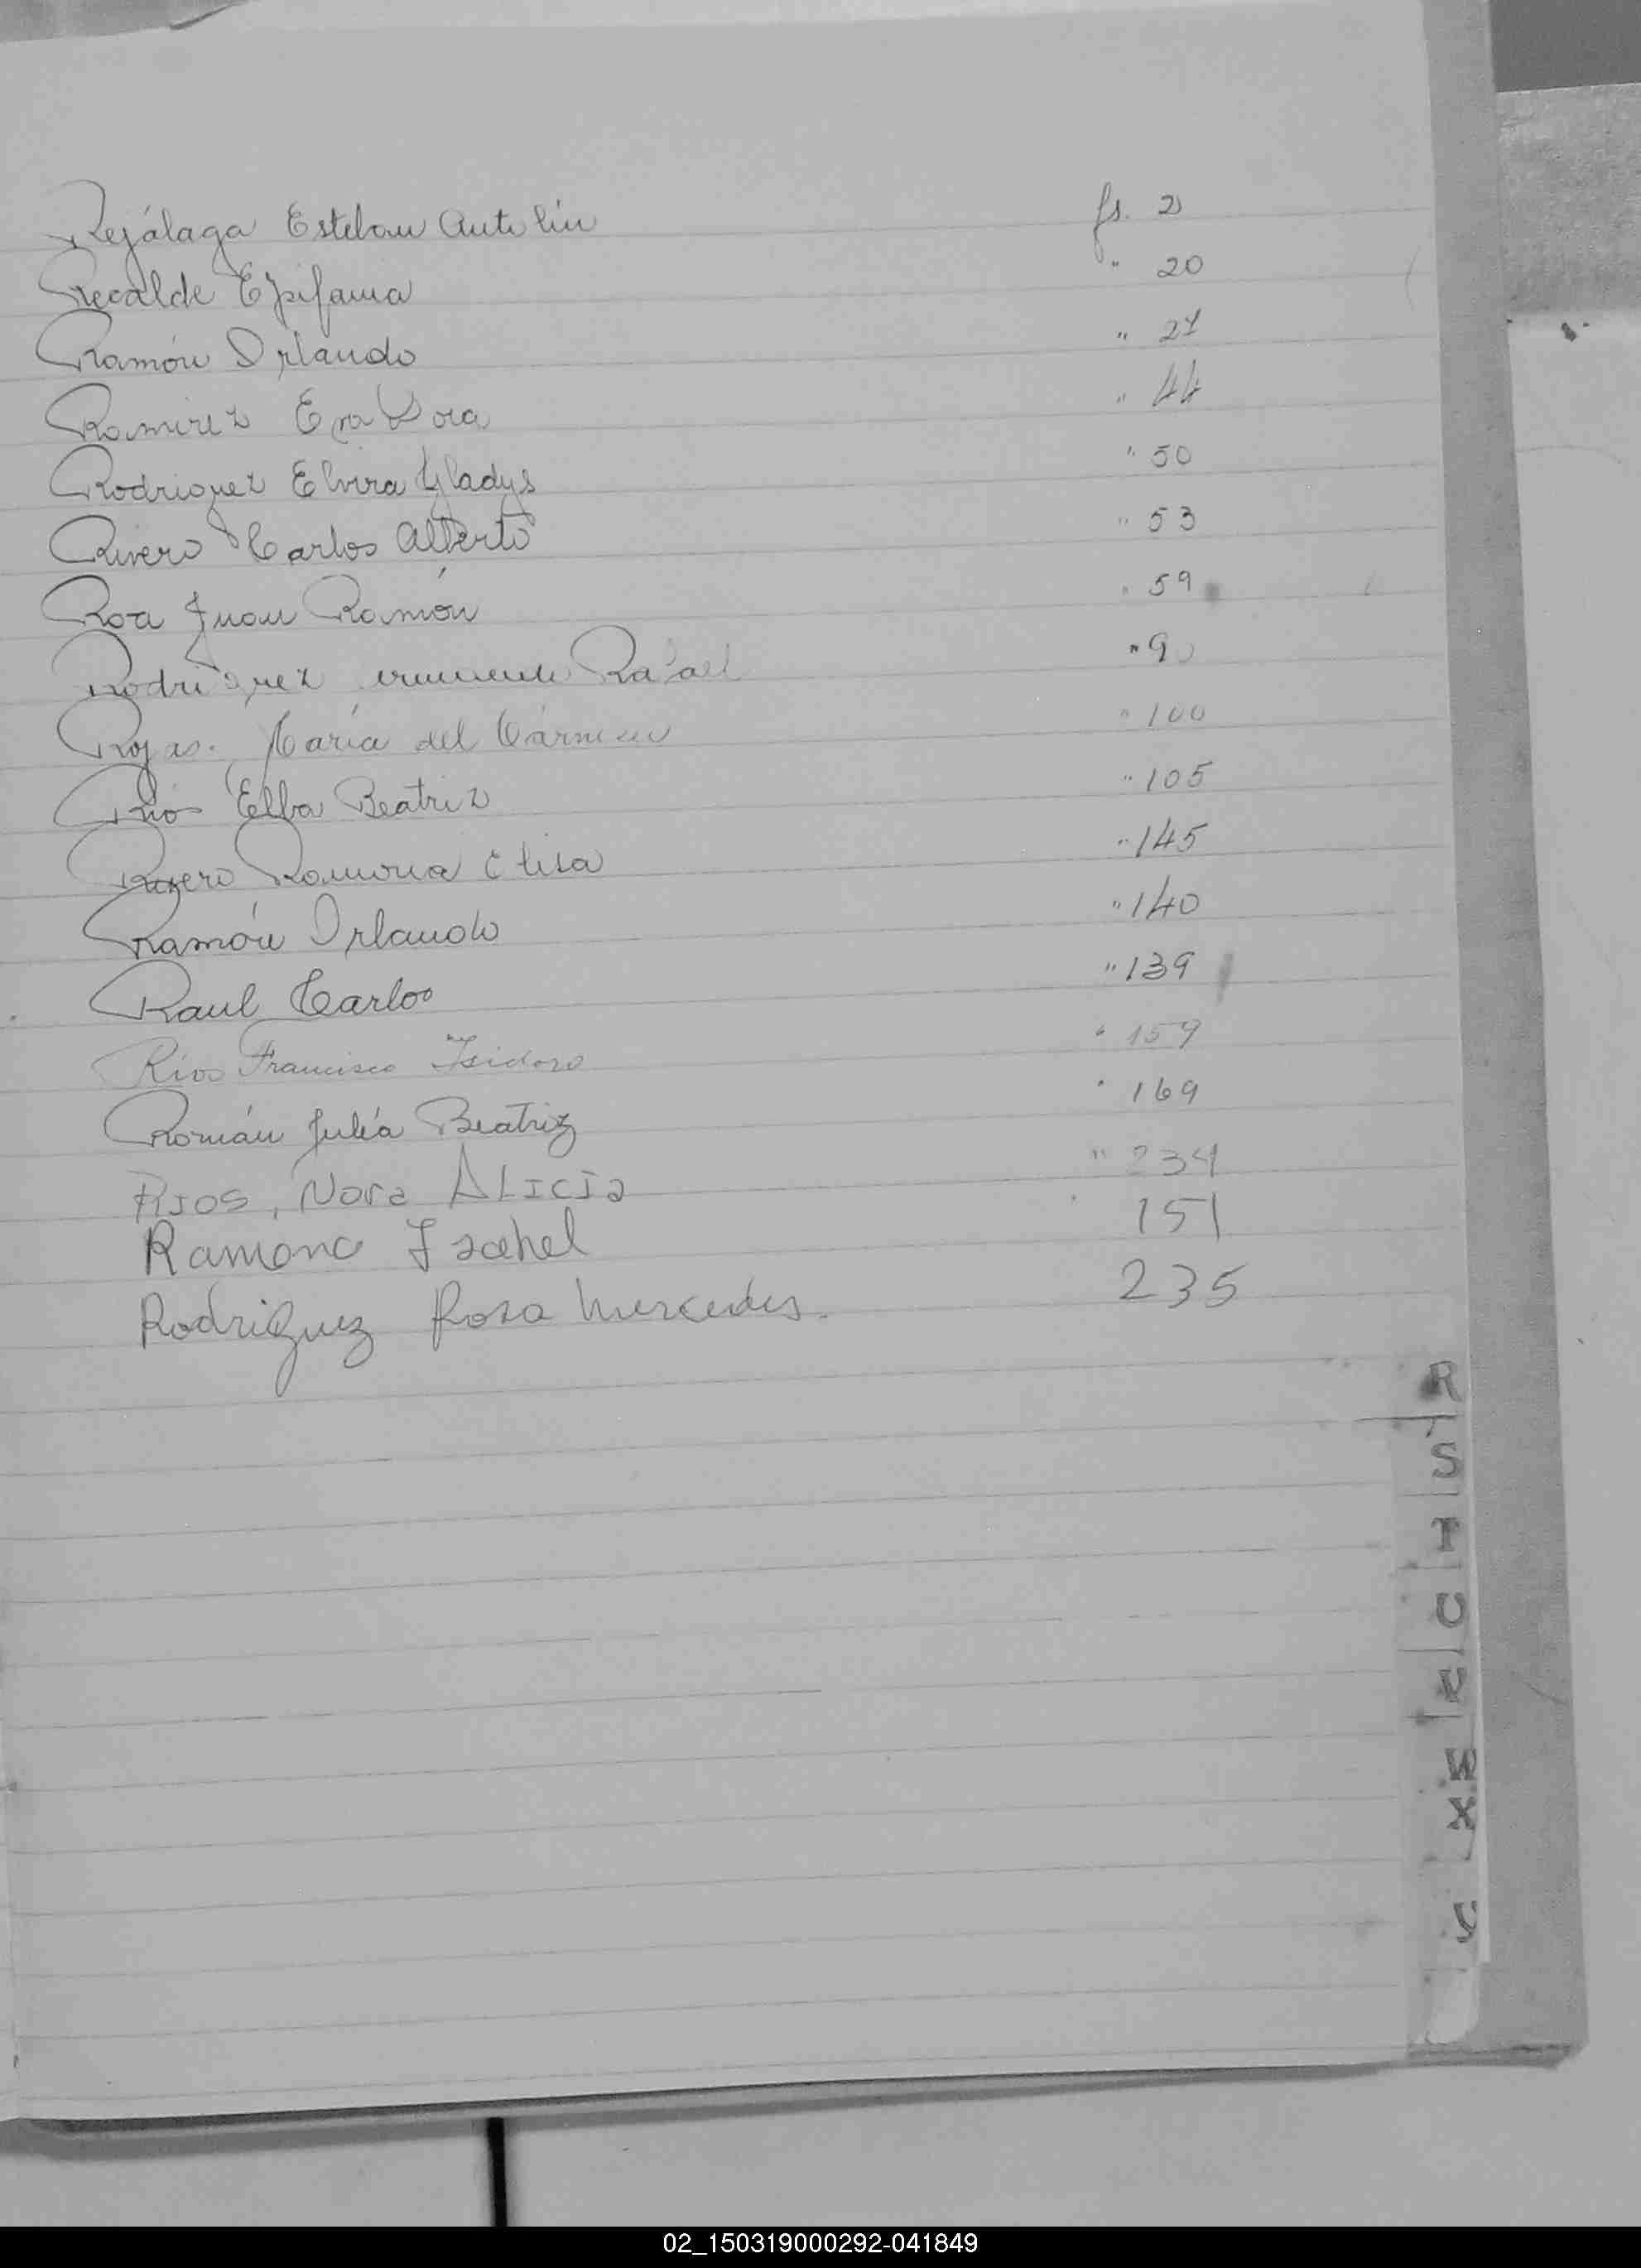 Rejálaga Esteban Antolín fs. 2
Recalde Epifania " 20
Ramón Orlando " 27
Ramirez Eva Dora " 44
Rodriguez Elvira Gladys " 50
Rivero Carlos Alberto " 53
Roa Juan Ramón " 59
Rodriguez Rafael " 90
Rojas. María del Cármen " 100
Ríos Elba Beatriz " 105
Rivero Ramona Elisa " 145
Ramón Orlando " 140
Raul Carlos " 139
Ríos Francisco Isidoro " 159
Román Julia Beatriz " 169
RIOS, Nora ALICIA " 234
Ramona Isabel 151
Rodriguez Rosa Mercedes. 235
R
S
T
X
02_150319000292-041849